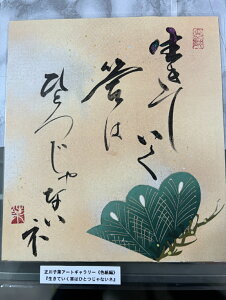 生きていく
答は
ひとつじゃないネ
アートギャラリー（色紙編）
『生きていく答はひとつじゃないネ』